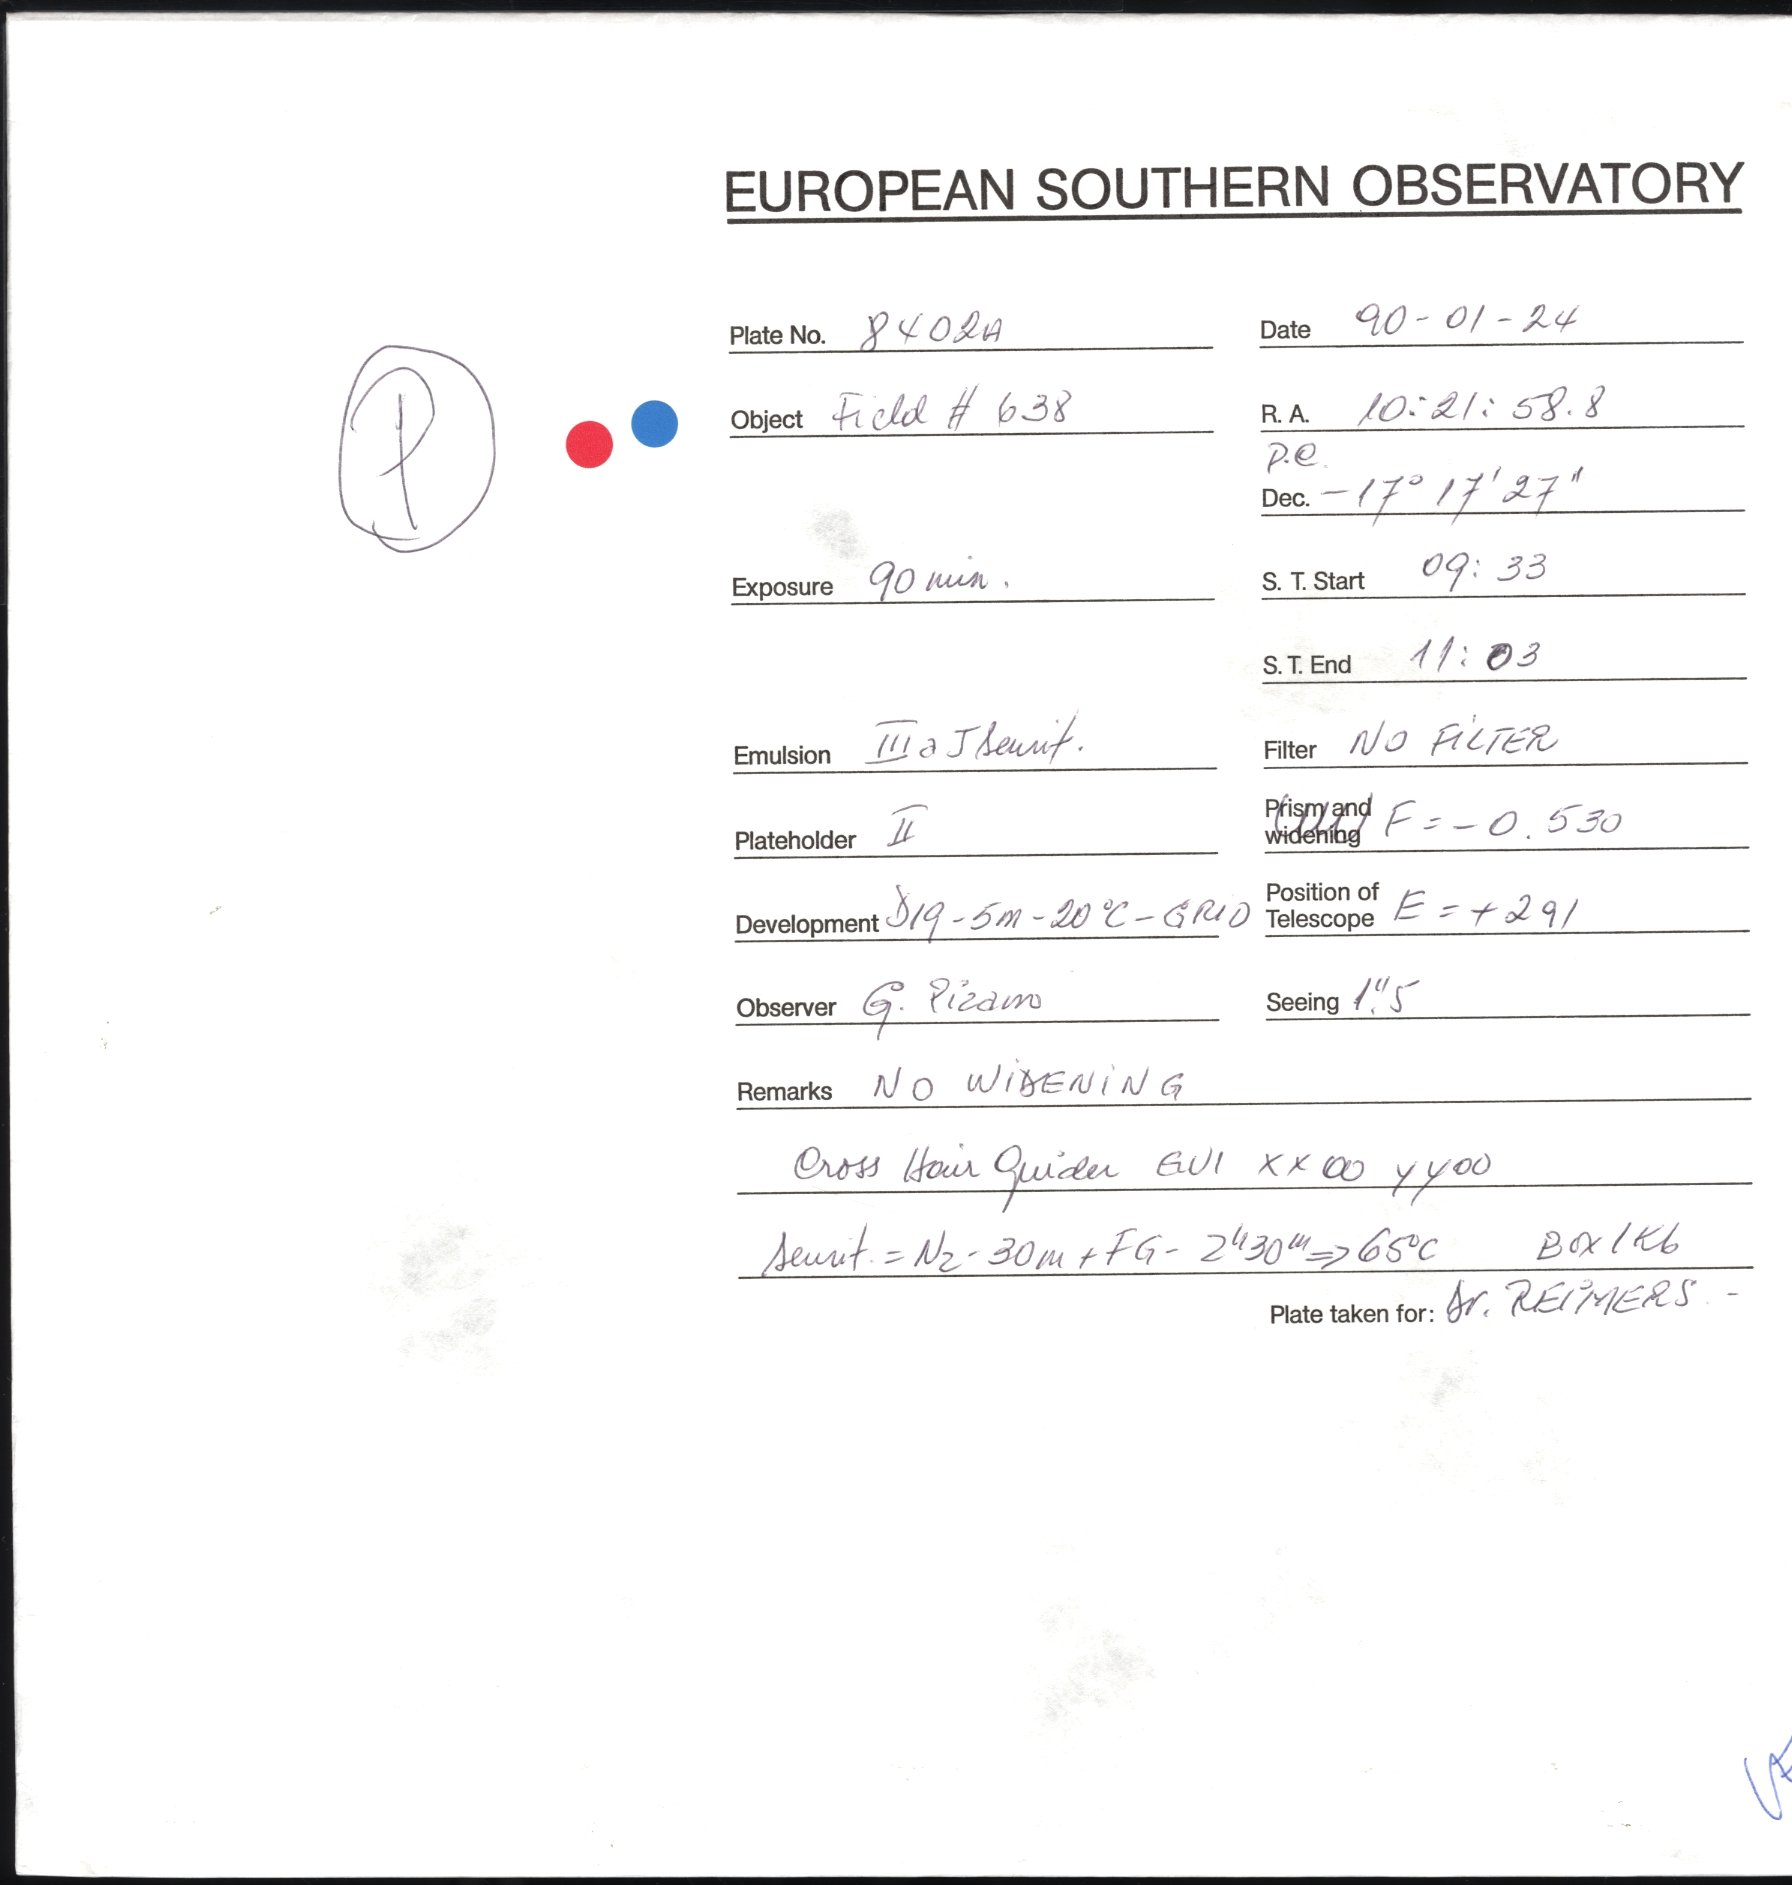 EUROPEAN SOUTHERN OBSERVATORY
Plate No. 8402A Date 90-01-24
P
Object Field # 638 R. A. 10:21:58.8
P.C.
Dec. -17° 17' 27"
Exposure 90 min. S. T. Start 09:33
S. T. End 11:03
Emulsion III a J Sensit. Filter NO FILTER
Plateholder II Prism and widening F = -0.530
Development D19-5m-20°C-GRID Position of Telescope E = +291
Observer G. Pizarro Seeing 1."5
Remarks NO WIDENING
Cross Hair Guider GUI XX00 YY00
Sensit. = N2-30m + FG- 2h30m => 65°C BOX 1K6
Plate taken for: Dr. REIMERS.-